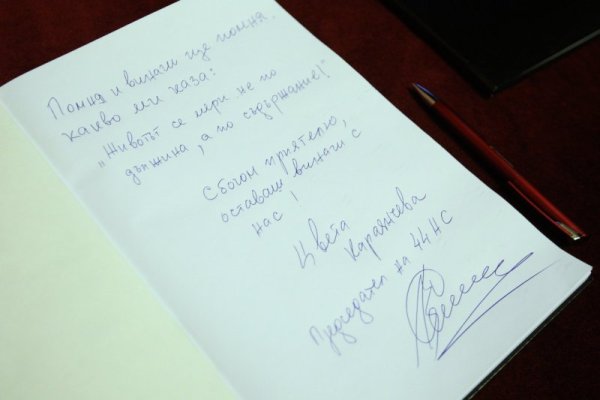 Помня и винаги ще помня,
какво ми каза:
„Животът се мери не по
дължина, а по съдържание!"
Сбогом приятелю,
оставаш винаги с
нас!
Цвета
Караянчева
Председател на 44НС